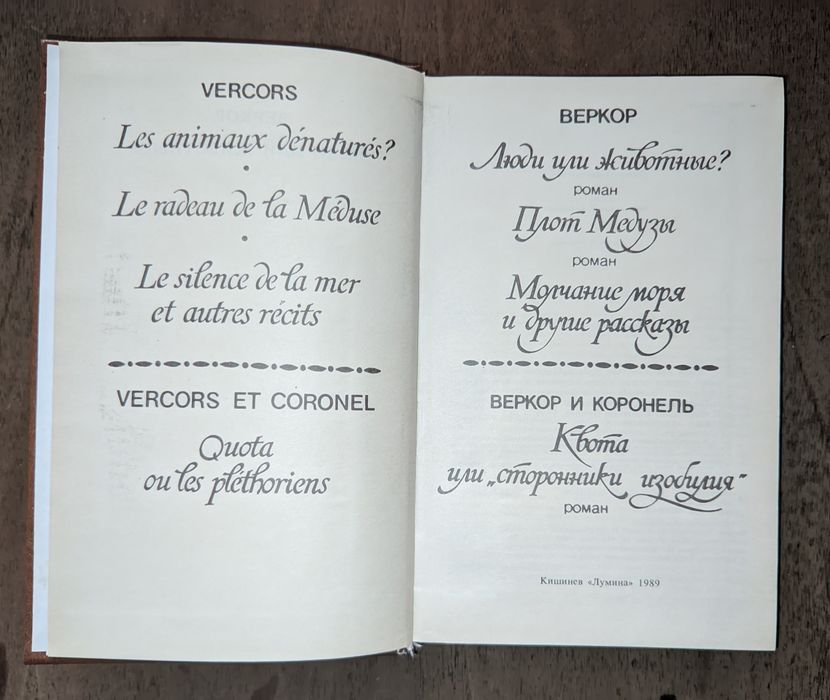 VERCORS
Les animaux dénaturés?
Le radeau de la Méduse
Le silence de la mer
et autres récits
VERCORS ET CORONEL
Quota
ou les pléthoriens
ВЕРКОР
Люди или животные?
роман
Плот Медузы
роман
Молчание моря
и другие рассказы
ВЕРКОР И КОРОНЕЛЬ
Квота
или „сторонники изобилия"
роман
Кишинев «Лумина» 1989